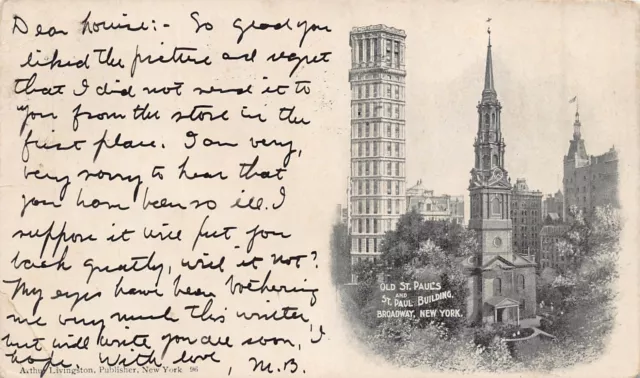 Dear Louise:- So glad you
liked the picture and regret
that I did not send it to
you from the store in the
first place. I am very,
very sorry to hear that
you have been so ill. I
suppose it will put you
back greatly, will it not?
My eyes have been bothering
me very much this winter,
but will write you are soon, I
hope. With love, M.B.
Arthur Livingston, Publisher, New York 96
OLD ST. PAUL'S
AND
ST. PAUL BUILDING,
BROADWAY, NEW YORK.